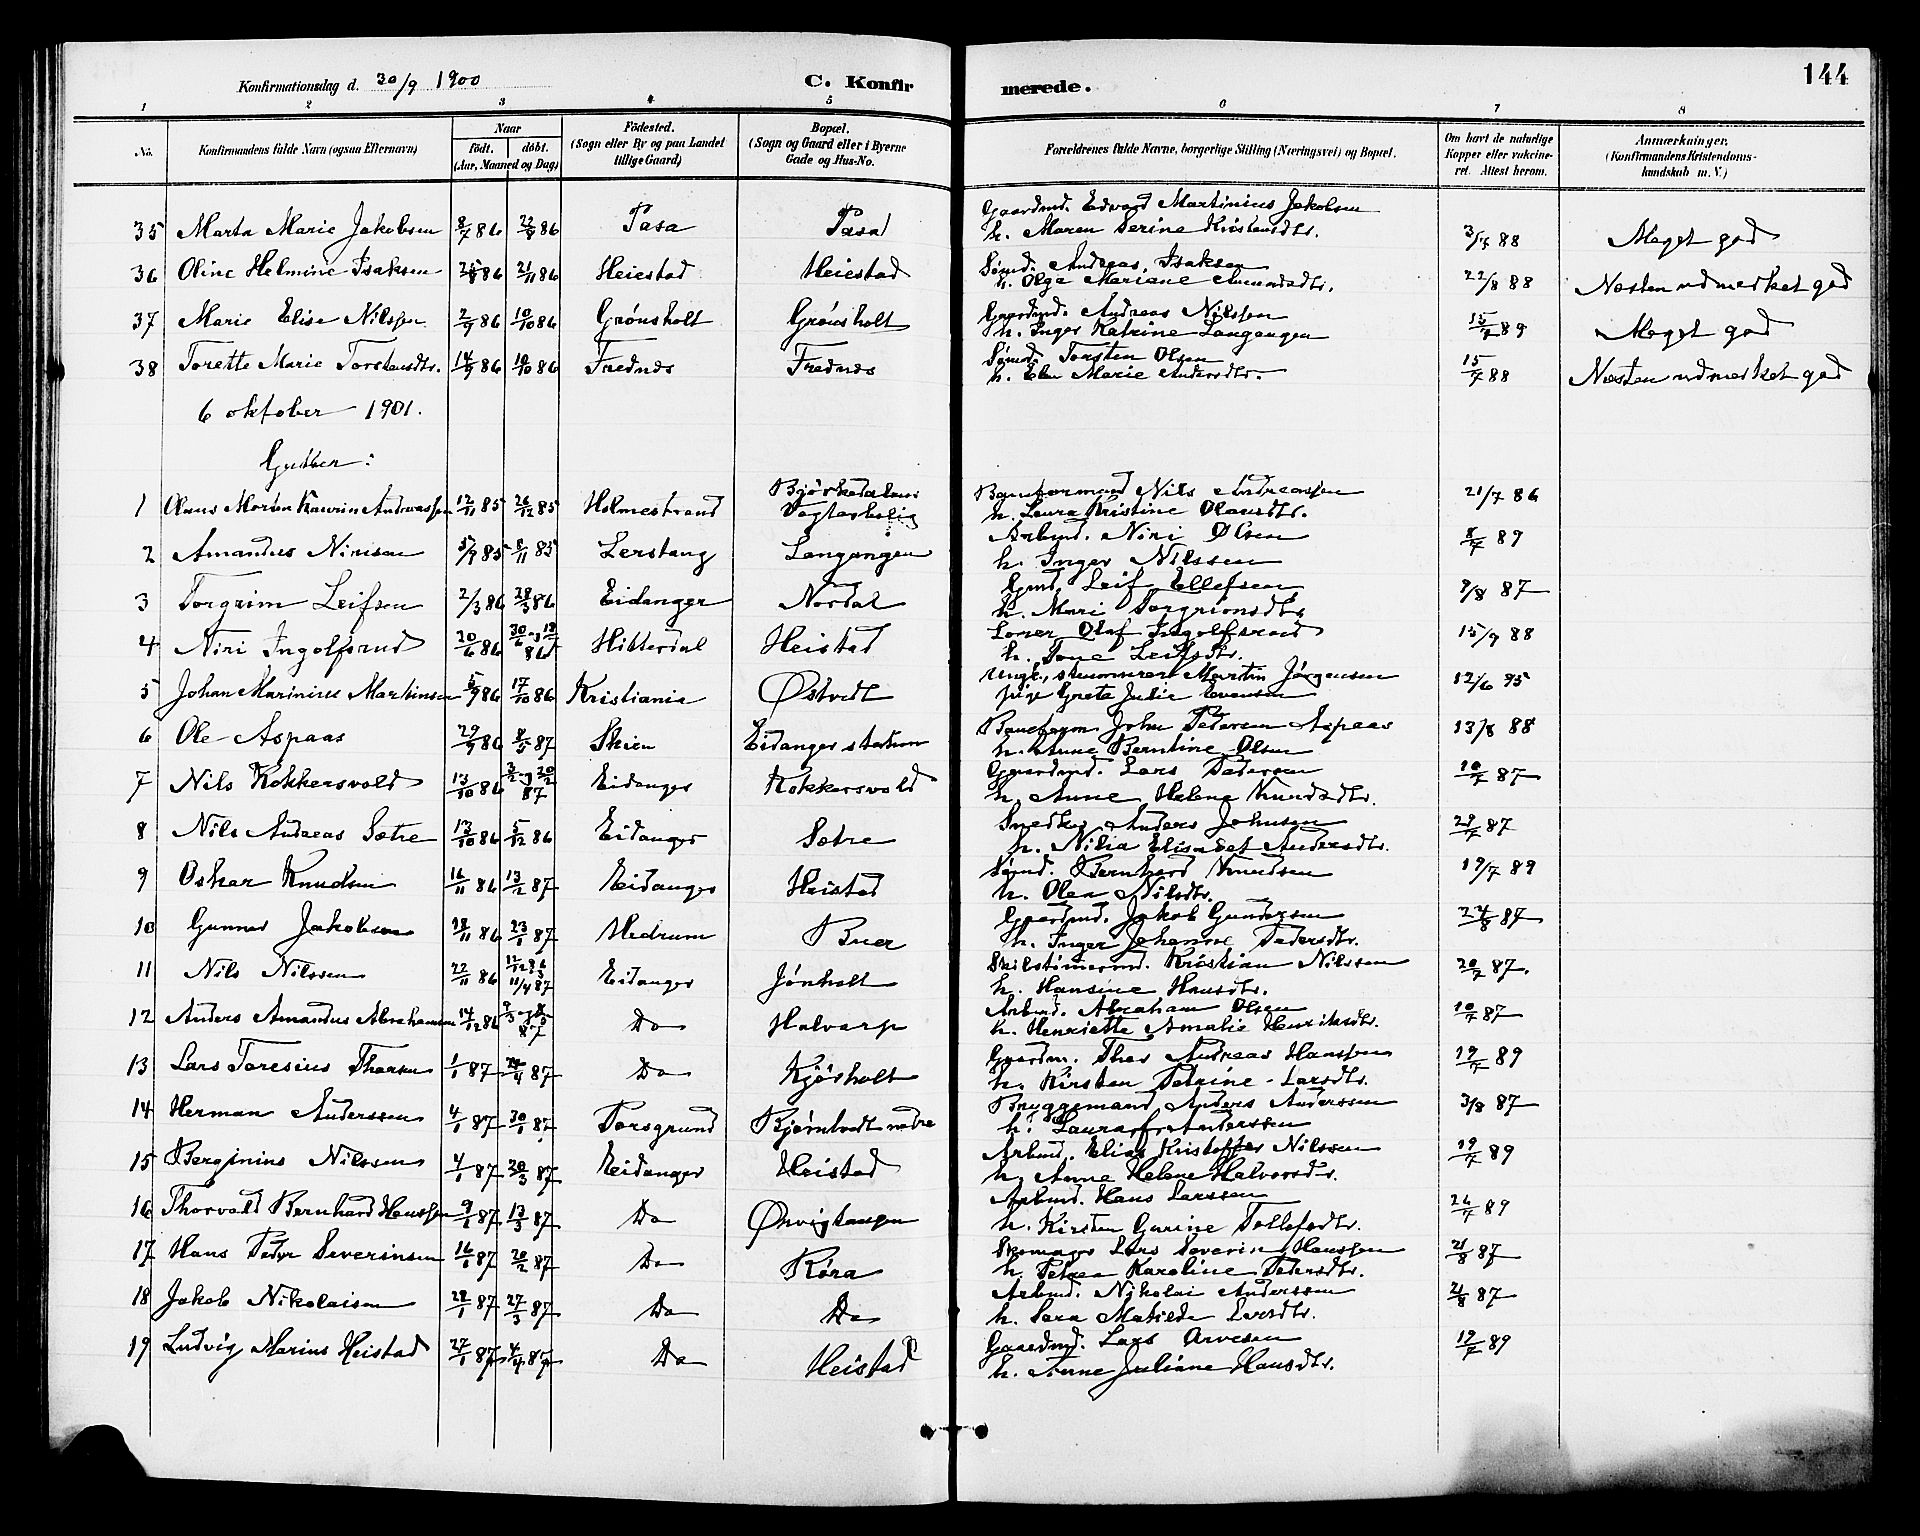 144
Konfirmationsdag d. 30/9 1900
C. Konfirmerede.
1 2 3 4 5 6 7 8
No. Konfirmandens fulde Navn (ogsaa Efternavn) Naar født. døbt. (Aar, Maaned og Dag) Fødested. (Sogn eller By og paa Landet tillige Gaard) Bopæl. (Sogn og Gaard eller i Byerne Gade og Hus-No. Forældrenes fulde Navne, borgerlige Stilling (Næringsvei) og Bopæl. Om havt de naturlige Kopper eller vakcineret. Attest herom. Anmærkninger. (Konfirmandens Kristendomskundskab m. V.)
35 Marta Marie Jakobsen 8/7 86 22/8 86 Pasa Pasa Gaardmd. Edvard Martinius Jakobsen h. Maren Serine Kristensdtr. 3/7 88 Meget god
36 Oline Helmine Isaksen 86 21/11 86 Heiestad Heiestad Sømd. Andreas Isaksen h. Olga Mariane Amundsdtr. 22/8 88 Næsten udmerket god
37 Marie Elise Nilssen 2/9 86 10/10 86 Grønsholt Grønsholt Gaardmd. Andreas Nilssen h. Inger Katrine Langangen 15/7 89 Meget god
38 Torette Marie Torstensdtr. 14/9 86 10/10 86 Frednes Frednes Sømd. Torsten Olsen h. Elen Marie Andersdtr. 15/7 88 Næsten udmerket god
6 oktober 1901.
Gutter:
1 Olaus Morten Kaurin Andreassen 12/11 85 26/12 85 Holmestrand Bjørkedalens Vogterbolig Baneformand Nils Andreassen h. Laura Kristine Olausdtr. 21/7 86
2 Amandus Nirisen 5/9 85 8/11 85 Lerstang Langangen Arbmd. Niri Olsen h. Inger Nilssen 8/7 89
3 Torgrim Leifsen 2/3 86 28/3 86 Eidanger Nordal Gmd. Leif Ellefsen h. Mari Torgrimsdtr. 9/8 87
4 Niri Ingolfsrud 20/6 86 30/6 og 86 Hitterdal Heistad Olaf Ingolfsrud h. Tone Leifsdtr. 15/9 88
5 Johan Marinius Martinsen 5/9 86 17/10 86 Kristiania Østvedt Ungk., tømmerm Martin Jørgensen pige Grete Julie 12/6 95
6 Ole Aspaas 29/9 86 8/5 87 Skien Eidanger station Baneform John Pedersen Aspaas h. Anne Berntine Olsen 13/8 88
7 Nils Kokkersvold 13/10 86 3/2 og 20/2 87 Eidanger Kokkersvold Gaardmd. Lars Pedersen h. Anne Helene Knudsdtr. 10/7 87
8 Nils Andreas Sætre 13/10 86 5/12 86 Eidanger Sætre Snedker Anders Johnsen h. Nilia Elisabet Andersdtr. 29/7 87
9 Oskar Knudsen 16/11 86 13/2 87 Eidanger Heistad Sømd. Bernhard Knudsen h. Olea Nilsdtr. 19/7 89
10 Gunnar Jakobsen 18/11 86 23/1 87 Hedrum Buer Gaardmd. Jakob Gundersen h. Inger Johanne Pedersdtr. 24/8 87
11 Nils Nilssen 22/11 86 12/12 86 11/4 87 Eidanger Jønholt Skibstømrmd. Kristian Nilssen h. Hansine Hansdtr. 20/7 87.
12 Anders Amandus Abrahamsen 14/12 86 87 Do Halvarp Arbmd. Abraham Olsen h. Henriette Amalie Henriksdtr. 10/7 87
13 Lars Toresius Thorsen 1/1 87 24/4 87 Do Kjørholt Gaardm. Thor Andreas Hanssen h. Kirsten Petrine Larsdtr. 19/7 89
14 Herman Anderssen 4/1 87 30/1 87 Porsgrund Bjørntvedt nedre Bryggemand Anders Anderssen h. Laura f. Anderssen 3/8 87
15 Berginius Nilssen 4/1 87 20/3 87 Eidanger Heistad Arbmd. Elias Kristoffer Nilssen h. Anne Helene Halvorsdtr. 19/7 89
16 Thorvald Bernhard Hanssen 9/1 87 13/3 87 Do Ørvigtangen Arbmd. Hans Larssen h. Kirsten Gurine Tollefsdtr. 26/7 89
17 Hans Peder Severinsen 16/1 87 20/2 87 Do Røra Skomager Lars Severin Hanssen h. Petrea Karoline Pedersdtr. 21/8 87
18 Jakob Nikolaisen 28/1 87 27/3 87 Do Do Arbmd. Nikolai Anderssen h. Sara Matilde Larsdtr. 21/8 87
19 Ludvig Marius Heistad 27/1 87 4/4 87 Do Heistad Gaardmd. Lars Arvesen h. Anne Juliane Hansdtr. 19/7 89